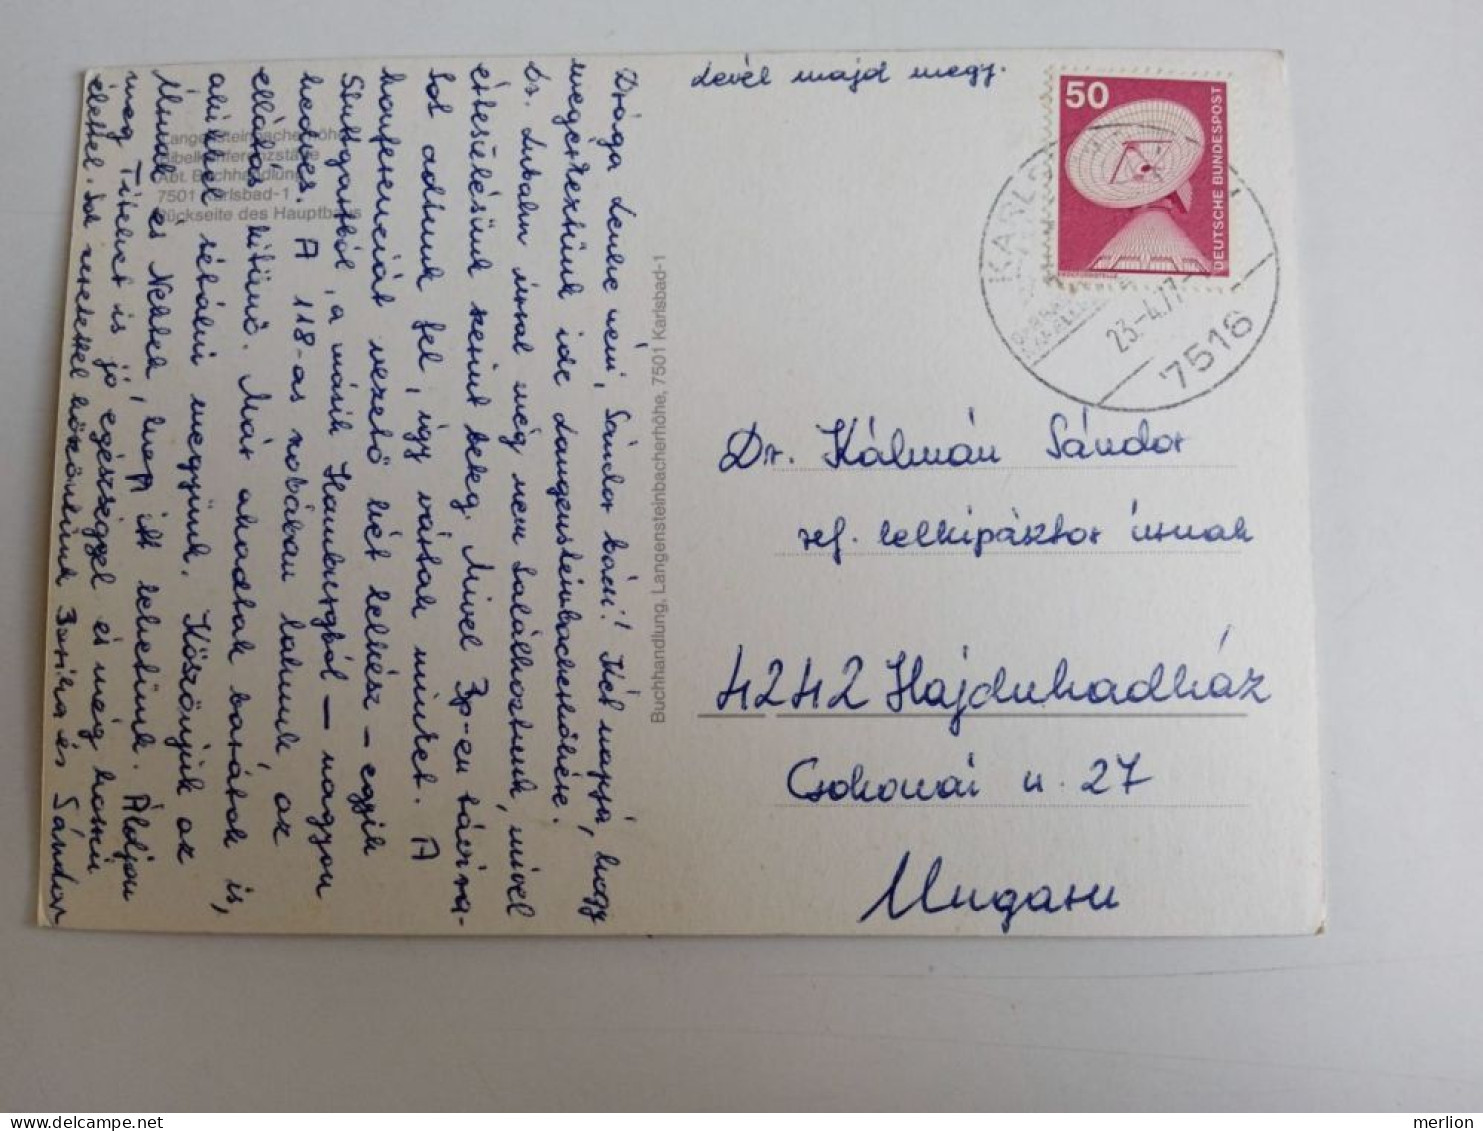 Levél majd megy.
Drága Lenke néni, Sándor bácsi! Két napja, hogy
megérkeztünk ide Langensteinbacherhöhére.
Dr. Lubahn úrral még nem találkoztunk, mivel
értesülésünk szerint beteg. Mivel Bp-en távira-
tot adtunk fel, így vártak minket. A
konferenciát vezető két lelkész – egyik
Stuttgartból, a másik Hamburgból – nagyon
kedves. A 118-as szobában lakunk, az
ellátás kitünő. Már akadtak barátok is,
akikkel sétálni megyünk. Köszönjük az
Úrnak és Nektek, hogy itt lehetünk. Áldjon
meg Titeket is jó egészséggel és még hosszú
élettel. Sok szeretettel köszöntünk Borika és Sándor
Langensteinbacherhöhe
Bibelkonferenzstätte
Abt. Buchhandlung
7501 Karlsbad-1
Rückseite des Hauptbaus
Buchhandlung, Langensteinbacherhöhe, 7501 Karlsbad-1
50
DEUTSCHE BUNDESPOST
KARLS
23.-4.77
7516
Dr. Kálmán Sándor
ref. lelkipásztor úrnak
4242 Hajduhadház
Csokonai u. 27
Ungarn